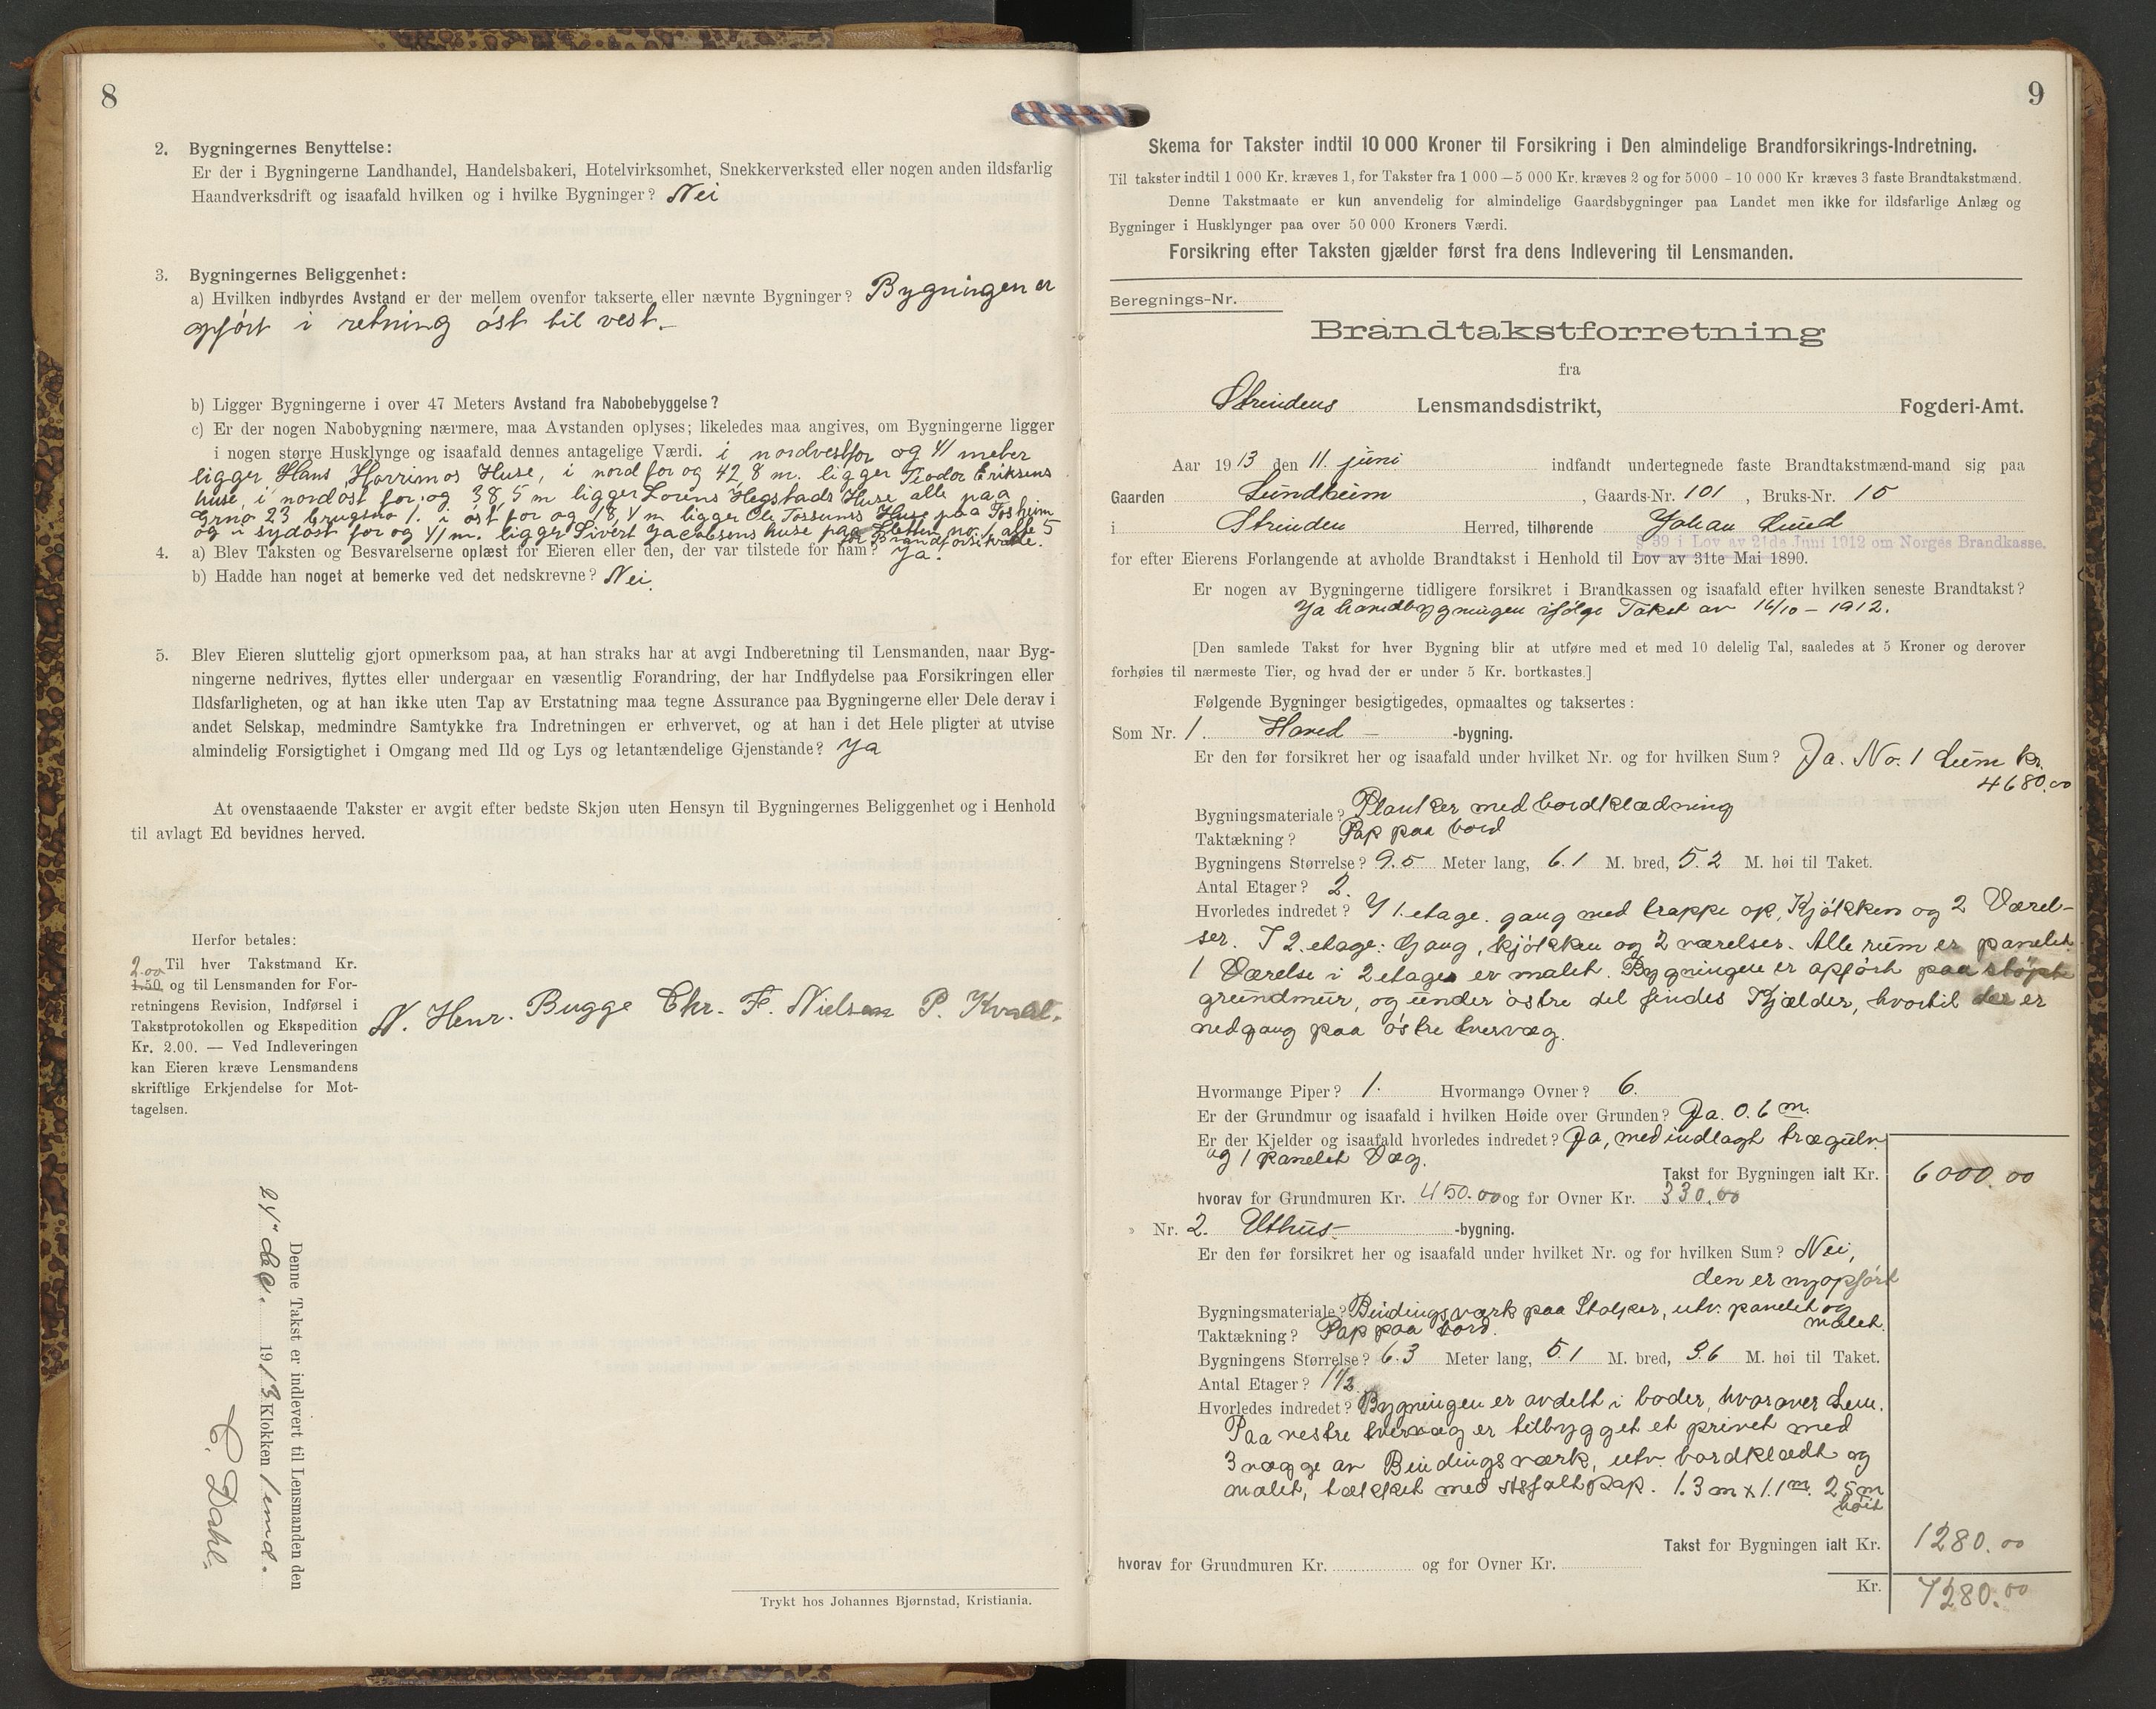 8
2. Bygningernes Benyttelse:
Er der i Bygningerne Landhandel, Handelsbakeri, Hotelvirksomhet, Snekkerverksted eller nogen anden ildsfarlig
Haandverksdrift og isaafald hvilken og i hvilke Bygninger? Nei
3. Bygningernes Beliggenhet:
a) Hvilken indbyrdes Avstand er der mellem ovenfor takserte eller nævnte Bygninger? Bygningen er
opført i retning øst til vest.
b) Ligger Bygningerne i over 47 Meters Avstand fra Nabobebyggelse?
c) Er der nogen Nabobygning nærmere, maa Avstanden oplyses; likeledes maa angives, om Bygningerne ligger
i nogen større Husklynge og isaafald dennes antagelige Værdi. i nordvestfor og 41 meter
ligger Hans Huse, i nord for og 42,8 m. ligger Teodor Eriksens
huse, i nordøst for og 38,5 m ligger Lorens Hegstads Huse alle paa
Grno 23 brugsno 1. i øst for og 18,4 m ligger Ole Tossums Huse paa Tosheim
og i sydøst for og 41 m. ligger Sivert Jacobsens huse paa Sletten no. 1 alle 5
er Brandforsikrede.
4. a) Blev Taksten og Besvarelserne oplæst for Eieren eller den, der var tilstede for ham? Ja.
b) Hadde han noget at bemerke ved det nedskrevne? Nei.
5. Blev Eieren sluttelig gjort opmerksom paa, at han straks har at avgi Indberetning til Lensmanden, naar Byg-
ningerne nedrives, flyttes eller undergaar en væsentlig Forandring, der har Indflydelse paa Forsikringen eller
Ildsfarligheten, og at han ikke uten Tap av Erstatning maa tegne Assurance paa Bygningerne eller Dele derav i
andet Selskap, medmindre Samtykke fra Indretningen er erhvervet, og at han i det Hele pligter at utvise
almindelig Forsigtighet i Omgang med Ild og Lys og letantændelige Gjenstande? Ja
At ovenstaaende Takster er avgit efter bedste Skjøn uten Hensyn til Bygningernes Beliggenhet og i Henhold
til avlagt Ed bevidnes herved.
Herfor betales:
2.00 Til hver Takstmand Kr.
1.50, og til Lensmanden for For-
retningens Revision, Indførsel i
Takstprotokollen og Ekspedition
Kr. 2.00. — Ved Indleveringen
kan Eieren kræve Lensmandens
skriftlige Erkjendelse for Mot-
tagelsen.
N. Henr. Bugge Chr. F. Nielsen P. Kvaal.
Denne Takst er indlevert til Lensmanden den
24" dec. 1913 Klokken 1 emd.
C. Dahl.
Trykt hos Johannes Bjørnstad, Kristiania.
9
Skema for Takster indtil 10 000 Kroner til Forsikring i Den almindelige Brandforsikrings-Indretning.
Til takster indtil 1 000 Kr. kræves 1, for Takster fra 1 000 – 5 000 Kr. kræves 2 og for 5000 – 10 000 Kr kræves 3 faste Brandtakstmænd.
Denne Takstmaate er kun anvendelig for almindelige Gaardsbygninger paa Landet men ikke for ildsfarlige Anlæg og
Bygninger i Husklynger paa over 50 000 Kroners Værdi.
Forsikring efter Taksten gjælder først fra dens Indlevering til Lensmanden.
Beregnings-Nr.
Brandtakstforretning
fra
Strindens Lensmandsdistrikt, Fogderi-Amt.
Aar 1913 den 11. juni indfandt undertegnede faste Brandtakstmænd-mand sig paa
Gaarden Lundheim, Gaards-Nr. 101, Bruks-Nr. 15
i Strinden Herred, tilhørende Johan Lund
§ 39 i Lov av 21de Juni 1912 om Norges Brandkasse.
for efter Eierens Forlangende at avholde Brandtakst i Henhold til Lov av 31te Mai 1890.
Er nogen av Bygningerne tidligere forsikret i Brandkassen og isaafald efter hvilken seneste Brandtakst?
Ja ifølge Takst av 16/10 – 1912.
[Den samlede Takst for hver Bygning blir at utføre med et med 10 delelig Tal, saaledes at 5 Kroner og derover
forhøies til nærmeste Tier, og hvad der er under 5 Kr. bortkastes]
Følgende Bygninger besigtigedes, opmaaltes og taksertes:
Som Nr. 1. Hoved -bygning.
Er den før forsikret her og isaafald under hvilket Nr. og for hvilken Sum? Ja. No. 1 Sum kr.
4680.00
Bygningsmateriale? Planker med bordklædning
Taktækning? Pap paa bord
Bygningens Størrelse? 9.5 Meter lang, 6.1 M. bred, 5.2 M. høi til Taket.
Antal Etager? 2.
Hvorledes indredet? I 1. etage. gang med trappe op, Kjøkken og 2 Værel-
ser. I 2. etage: Gang, kjøkken og 2 værelser. Alle rum er panelet
1 Værelse i 2 etage er malet. Bygningen er opført paa støpte
grundmur, og under østre del findes Kjælder, hvortil der er
nedgang paa østre tvervæg.
Hvormange Piper? 1. Hvormange Ovner? 6.
Er der Grundmur og isaafald i hvilken Høide over Grunden? Ja. 0.6 m.
Er der Kjelder og isaafald hvorledes indredet? Ja, med indlagt trægulv
og 1 panelet Væg.
Takst for Bygningen ialt Kr. 6000.00
hvorav for Grundmuren Kr. 450.00 og for Ovner Kr. 330.00
Nr. 2. Uthus -bygning.
Er den før forsikret her og isaafald under hvilket Nr. og for hvilken Sum? Nei,
den er nyopført
Bygningsmateriale? Bindingsværk paa Stolper, utv. panelet og
malet.
Taktækning? Pap paa bord.
Bygningens Størrelse? 6.3 Meter lang, 5.1 M. bred, 3.6 M. høi til Taket.
Antal Etager? 1 1/2
Hvorledes indredet? Bygningen er avdelt i boder, hvorover Lem.
Paa vestre tvervæg er tilbygget et privet med
3 vægge av Bindingsværk, utv. bordklædt og
malet, tækket med Asfaltpap. 1.3 m x 1.1 m. 2.5 m
høit
Takst for Bygningen ialt Kr. 1280.00
hvorav for Grundmuren Kr. og for Ovner Kr.
Kr. 7280.00